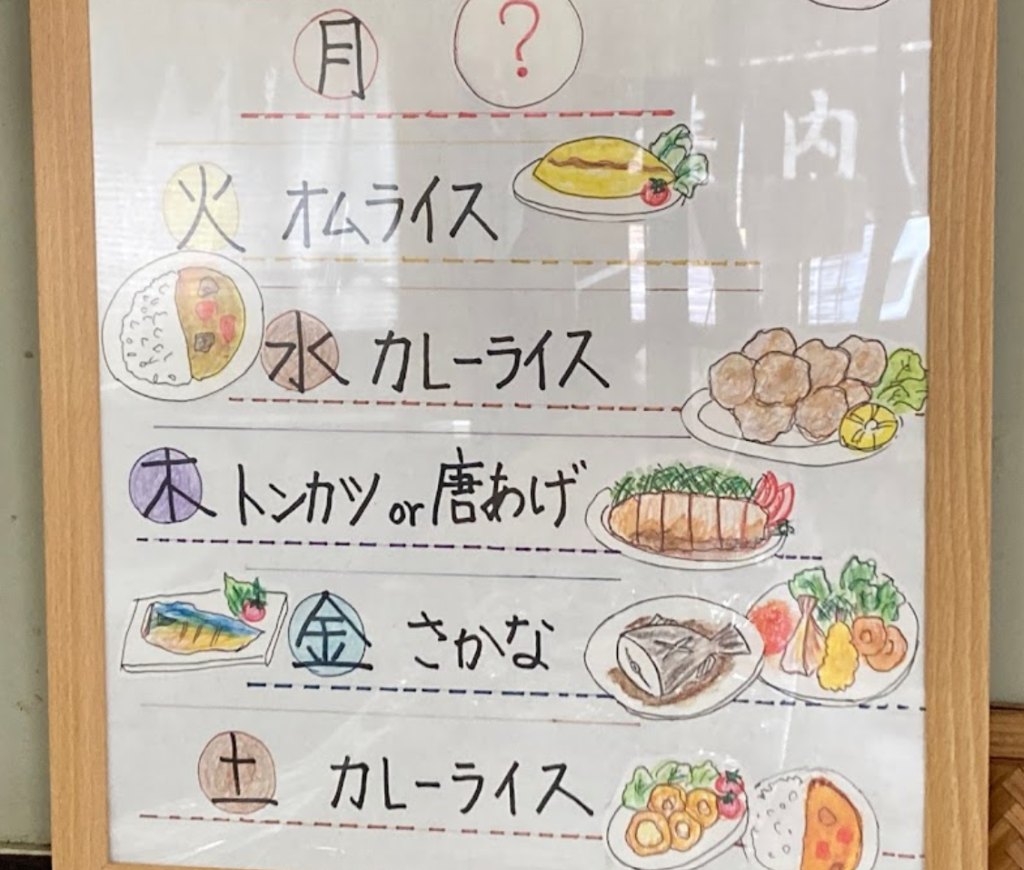 月 ?
火 オムライス
水 カレーライス
木 トンカツ or 唐あげ
金 さかな
土 カレーライス
内